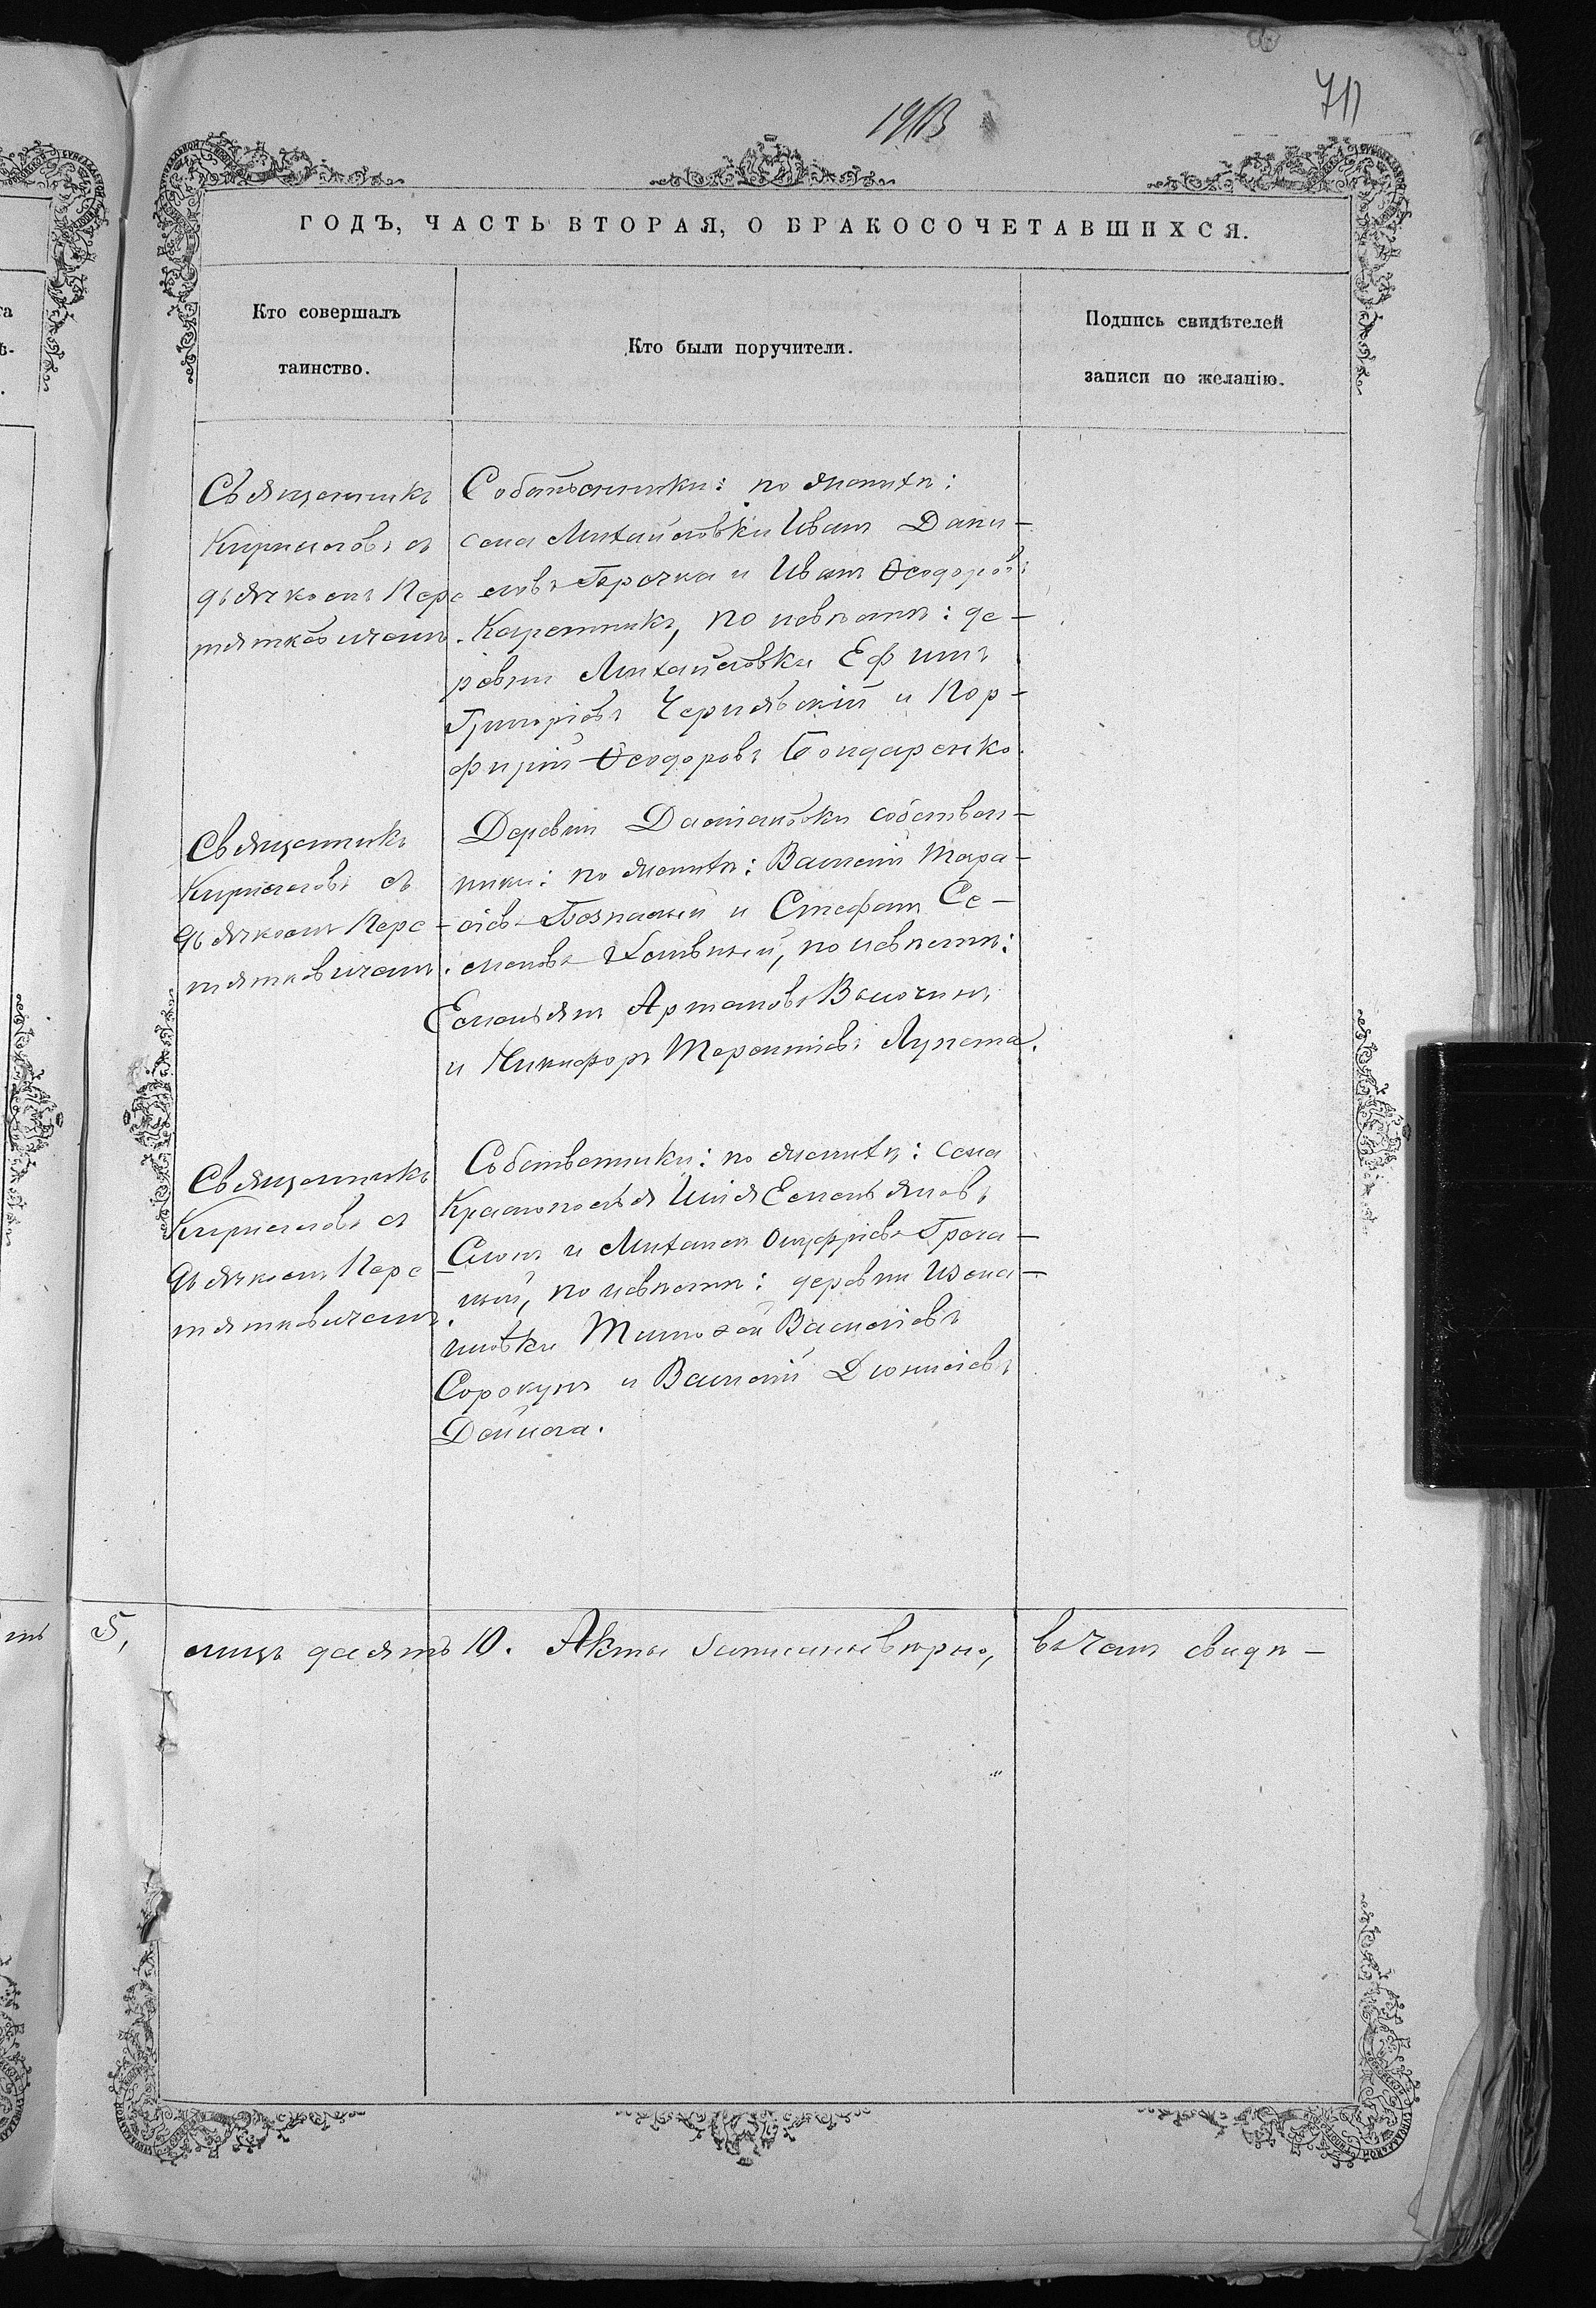 711
ГОДЪ, ЧАСТЬ ВТОРАЯ, О БРАКОСОЧЕТАВШИХСЯ.
Кто совершалъ
таинство.
Кто были поручители.
Подпись свидѣтелей
записи по желанію.
Священникъ
Кирилловъ съ
дьячкомъ Пере
тятковичемъ.
Собственники: по женихѣ:
села Михайловки Иванъ Дани-
ловъ и Иванъ Ѳеодоровъ
Каретникъ, по невѣстѣ: де-
ревни Михайловки Ефимъ
Григоріевъ Чернявскій и Пор-
фирій Ѳеодоровъ Бондаренко.
Священникъ
Кирилловъ съ
дьячкомъ Пере-
тятковичемъ.
Деревни собствен-
ники: по женихѣ: Василій Тара-
сіевъ и Стефанъ Се-
меновъ по невѣстѣ:
Емельянъ
и Никифоръ Терентіевъ Лупета.
Священникъ
Кирилловъ съ
дьячкомъ Пере-
тятковичемъ.
Собственники: по женихѣ: села
Краснополья Илія Емельяновъ
и Михаилъ Онуфріевъ
по невѣстѣ: деревни
Тимофей Василіевъ
Сорокунъ и Василій Діонисіевъ
Дейнега.
5,
лицъ десять 10. Акты записаны вѣрно, въ чемъ свидѣ-